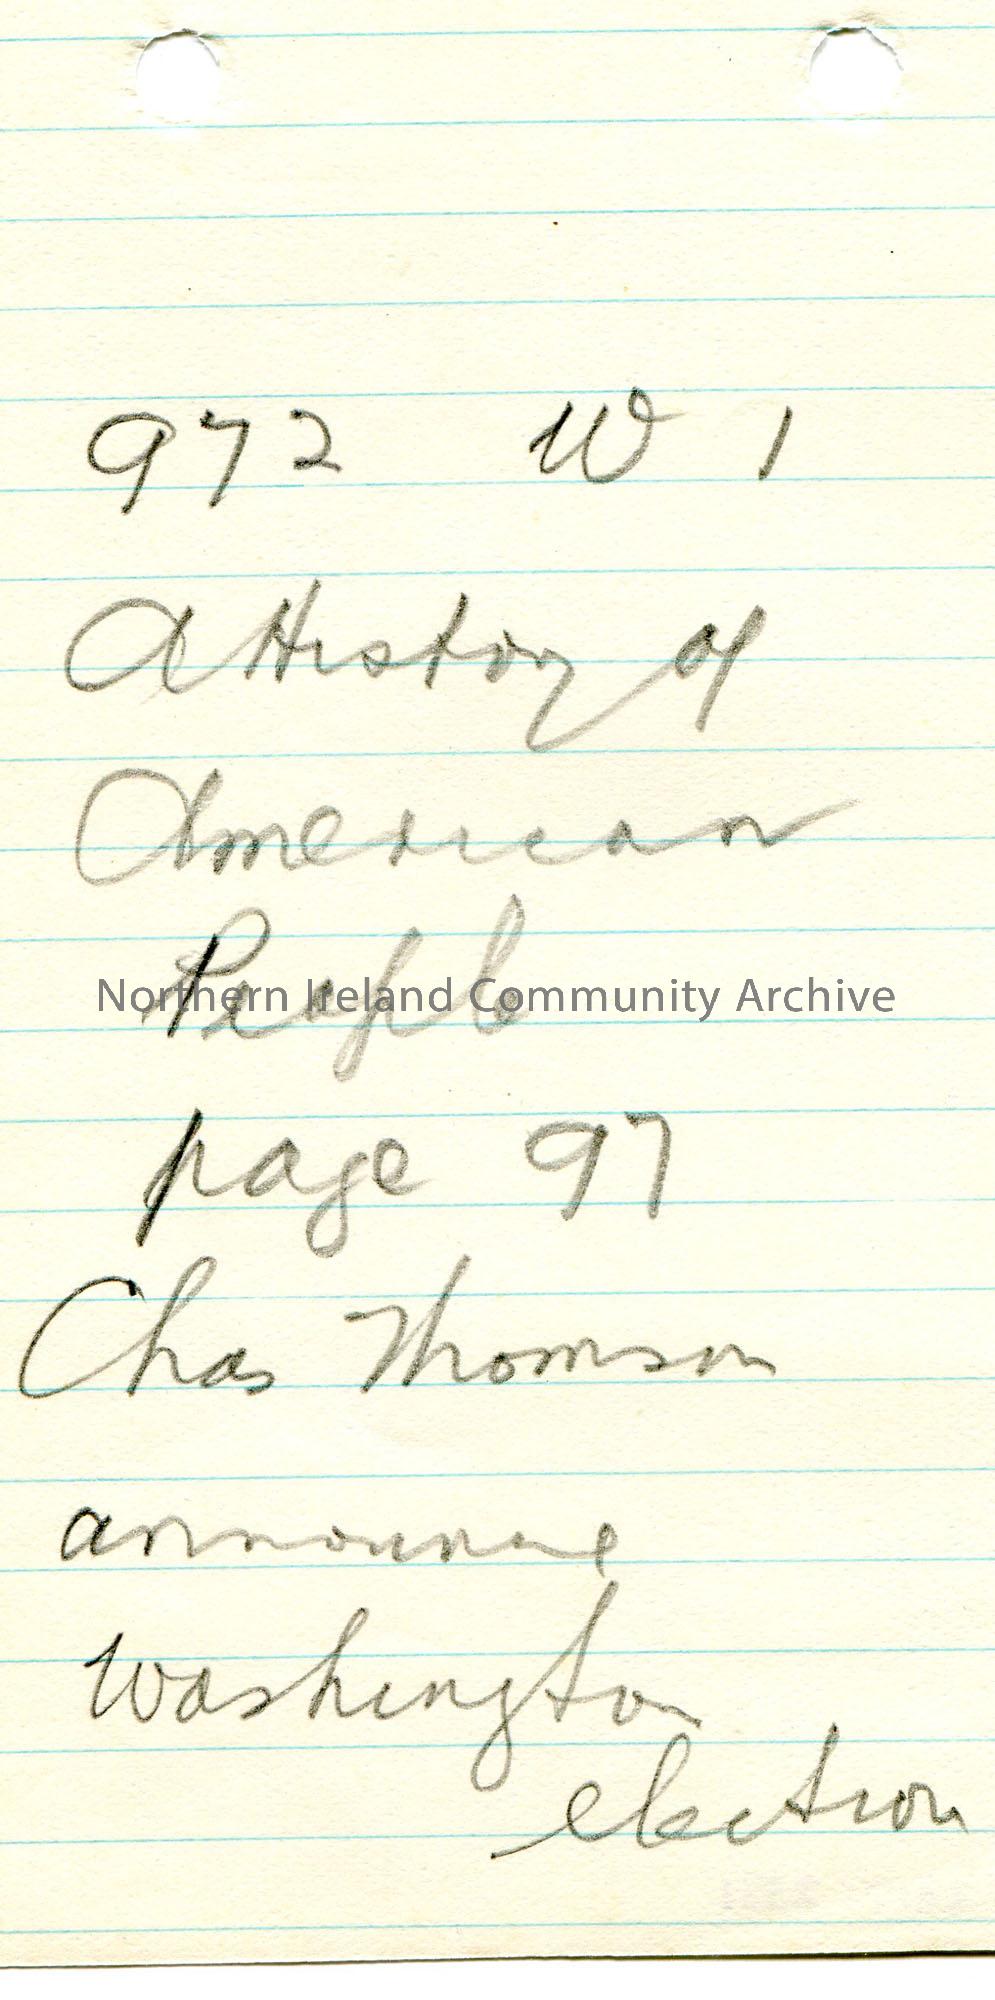 972 W 1
A History of
American
People
Northern Ireland Community Archive
page 97
Chas Thomson
announce
Washington
election